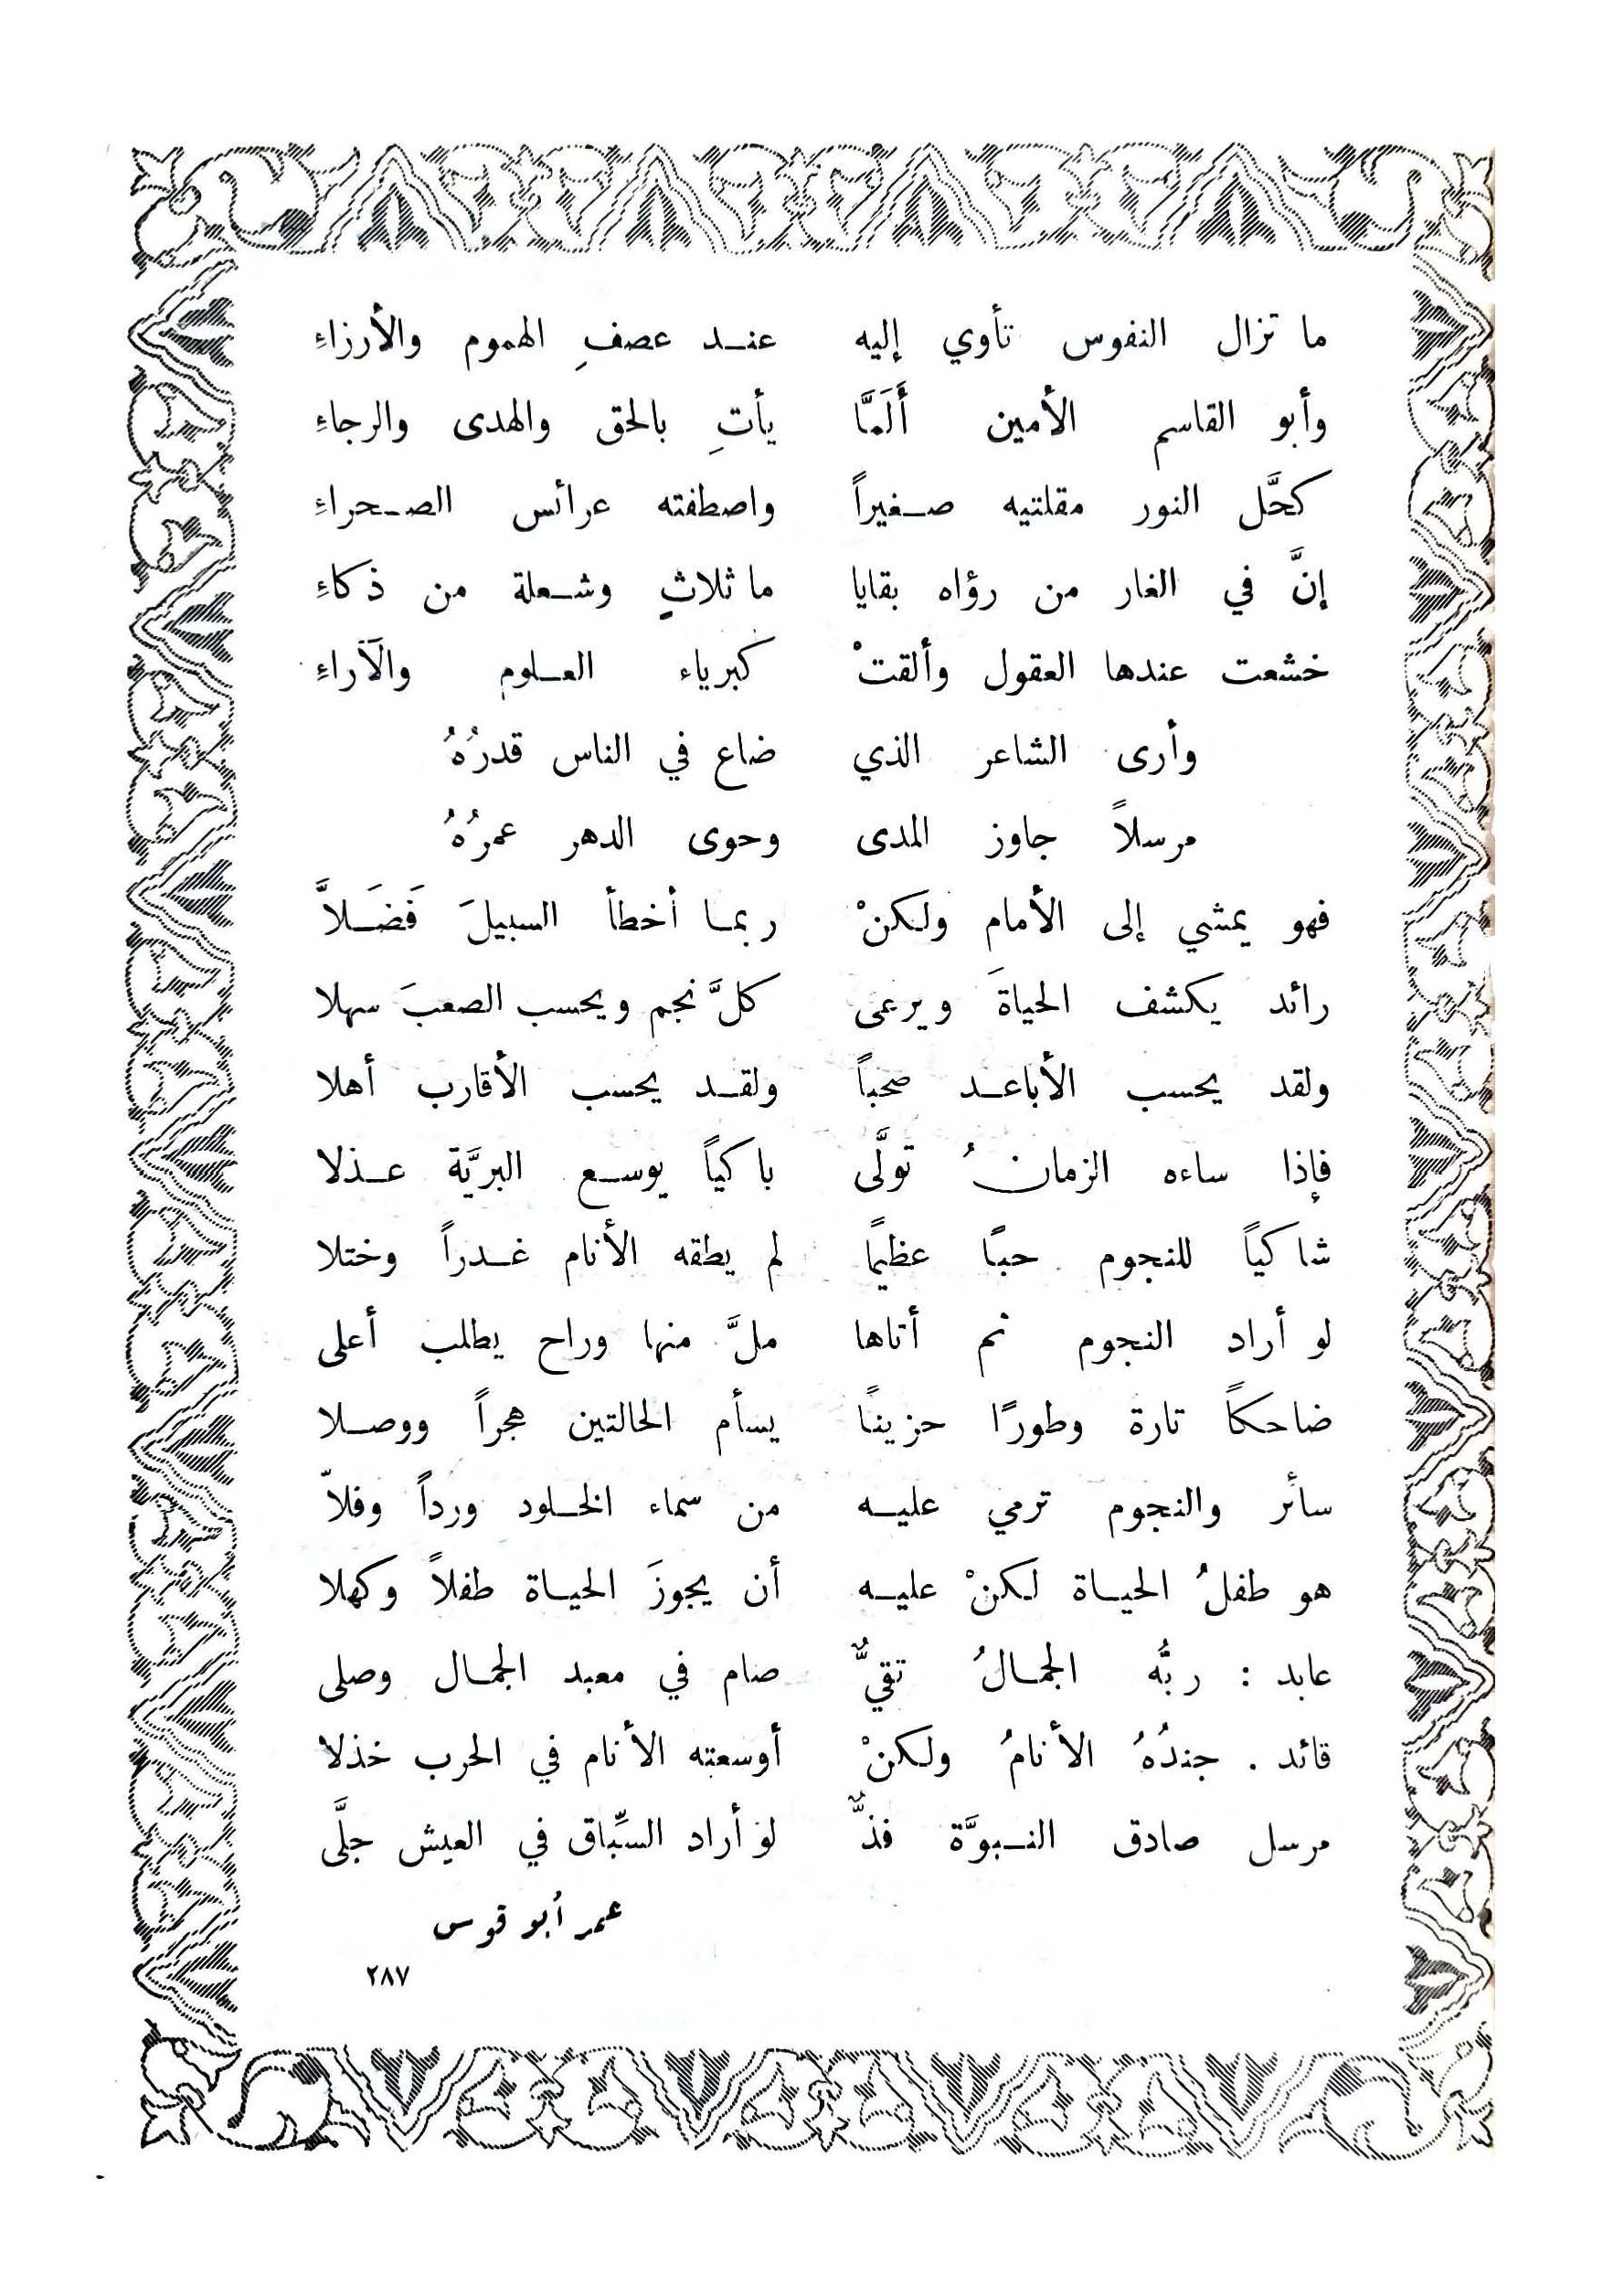 ما تزال النفوس تأوي إليه عند عصفِ الهموم والأرزاءِ
وأبو القاسم الأمين أَلَمَّا يأتِ بالحق والهدى والرجاءِ
كحَّل النور مقلتيه صغيراً واصطفته عرائس الصحراءِ
إنَّ في الغار من رؤاه بقايا ماثلاثٍ وشعلة من ذكاءِ
خشعت عندها العقول وألقتْ كبرياء العلوم والآراءِ
وأرى الشاعر الذي ضاع في الناس قدرُهُ
مرسلاً جاوز المدى وحوى الدهر عمرُهُ
فهو يمشي إلى الأمام ولكنْ ربما أخطأ السبيلَ فَضَلاَّ
رائد يكشف الحياةَ ويرعى كلَّ نجم ويحسب الصعبَ سهلا
ولقد يحسب الأباعد صحباً ولقد يحسب الأقارب أهلا
فإذا ساءه الزمانُ تولَّى باكياً يوسع البريَّة عذلا
شاكياً للنجوم حبًا عظيمًا لم يطقه الأنام غدراً وختلا
لو أراد النجوم ثم أتاها ملَّ منها وراح يطلب أعلى
ضاحكاً تارة وطورًا حزينًا يسأم الحالتين هجراً ووصلا
سائر والنجوم ترمي عليه من سماء الخلود ورداً وفلاّ
هو طفلُ الحياة لكنْ عليه أن يجوزَ الحياة طفلاً وكهلا
عابد : ربُّه الجمالُ تقيٌّ صام في معبد الجمال وصلى
قائد . جندُهُ الأنامُ ولكنْ أوسعته الأنام في الحرب خذلا
مرسل صادق النبوَّة فذٌّ لو أراد السبِّاق في العيش جلَّى
عمر أبو قوس
٢٨٧